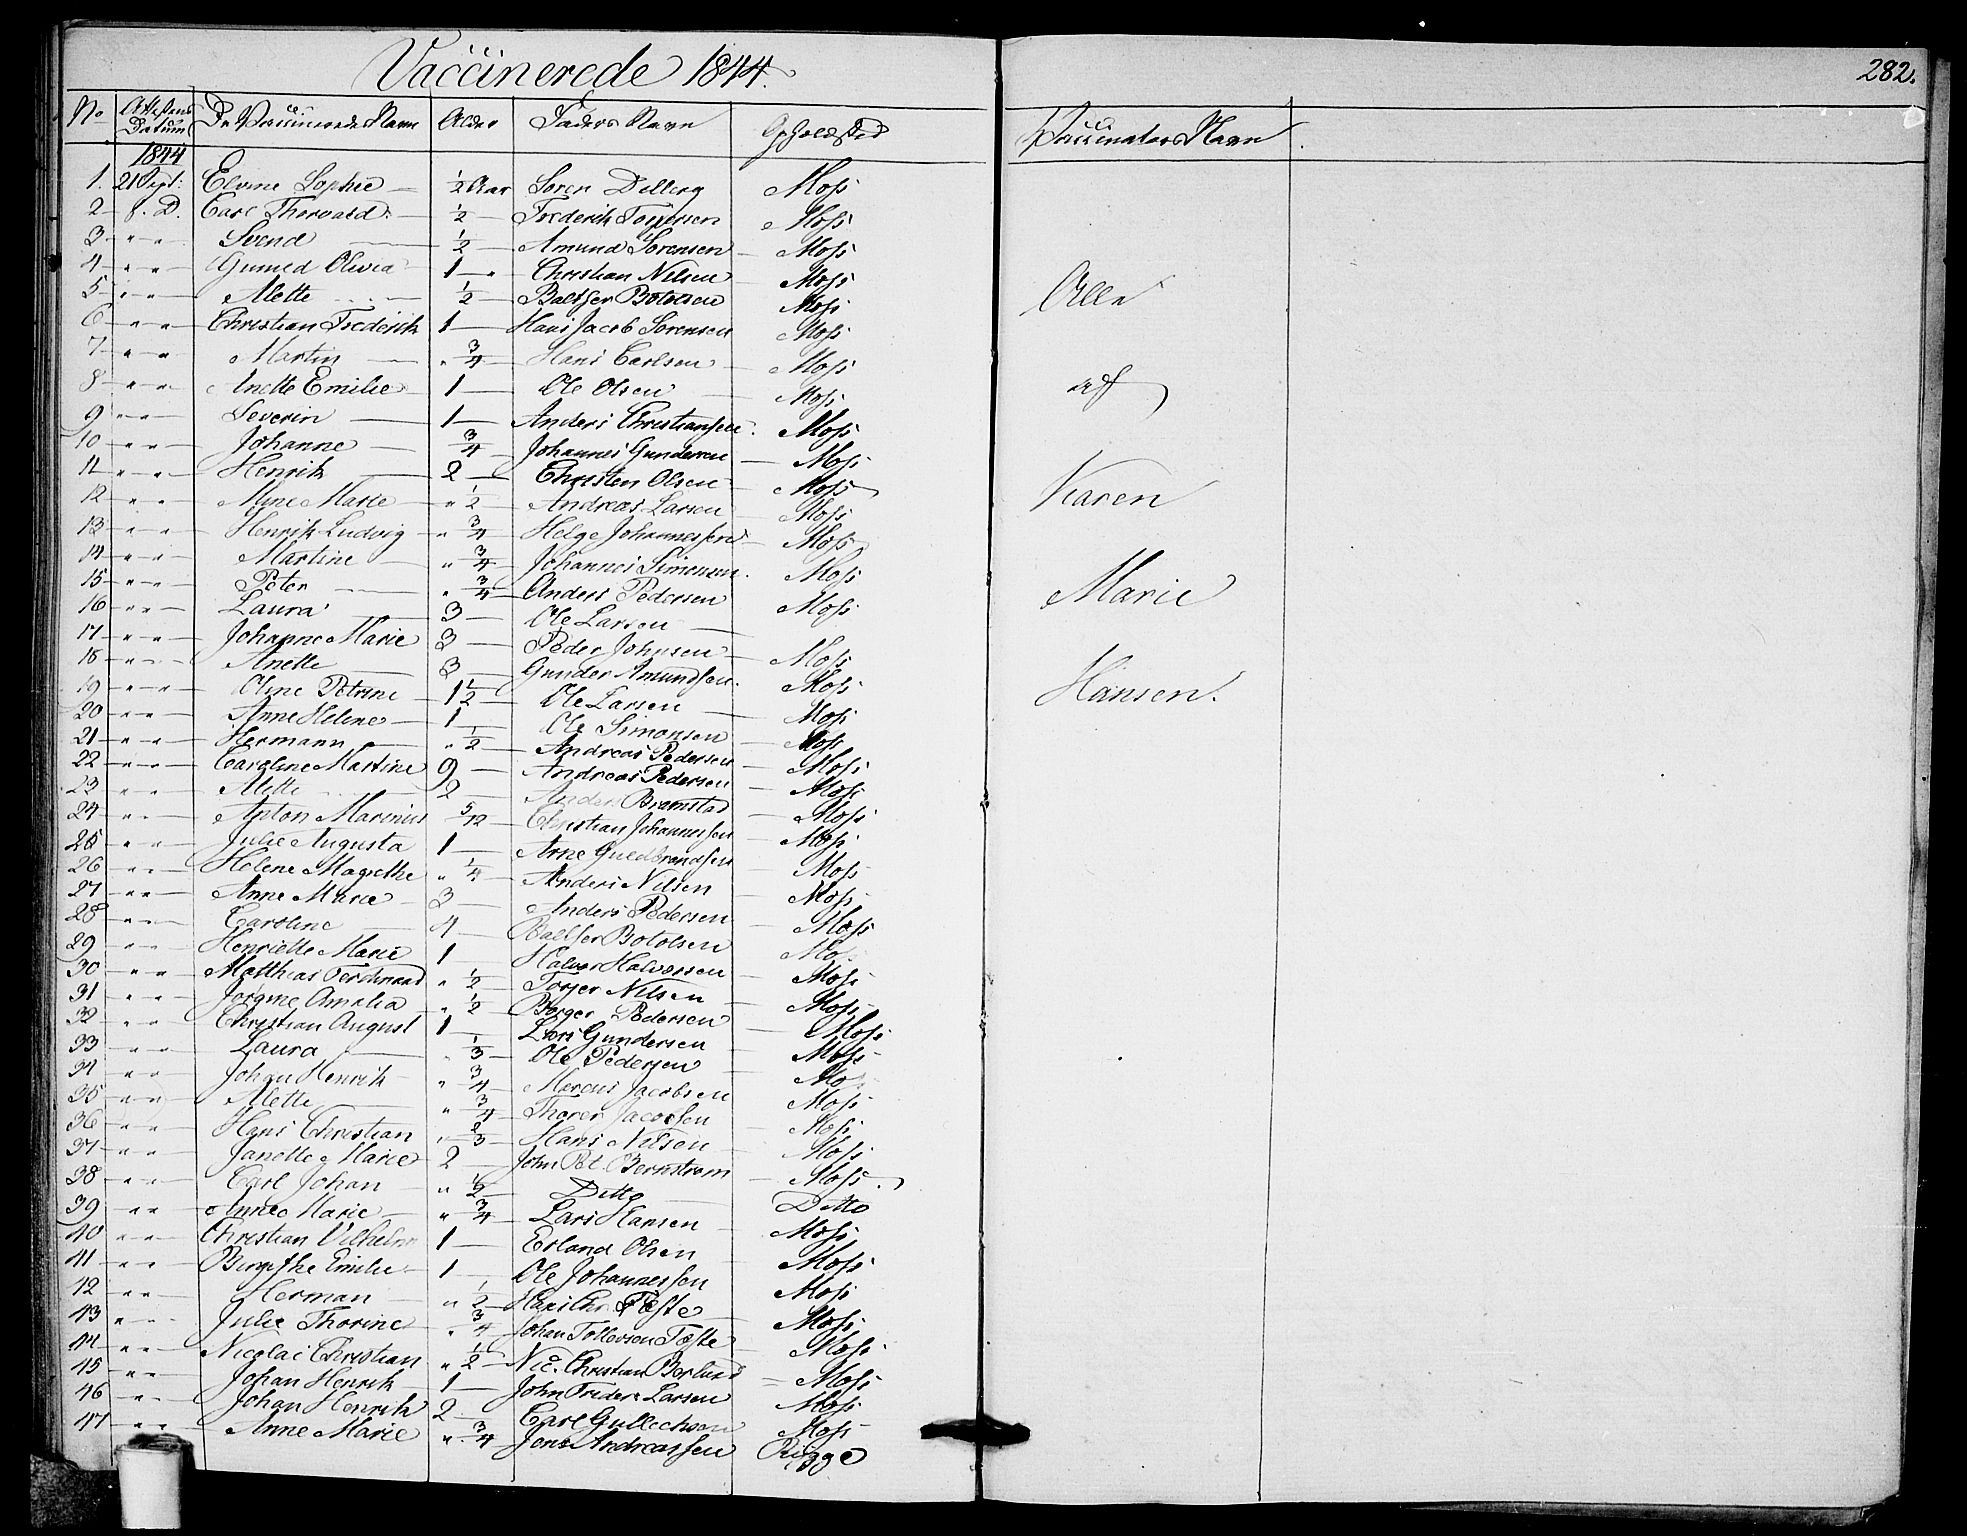 Vaccinerede 1844.
282.
No Attestens Datum De Vaccineredes Navn Alder Faders Navn Opholdsted Vaccinators Navn
1844
1. 21 Sept: Elvine Sophie ½ Aar Soren Dilberg Moss
2 s. D. Carl Thorvald ½ Frederik Torgersen Moss
3 " " Svend ½ Amund Sorensen Moss
4 " " Gunild Olivia 1 Christian Nilsen Moss
5 " " Mette ½ Baltser Botolsen Moss
6 " " Christian Frederik 1 Hans Jacob Sorensen Moss
7 " " Martin " ¾ Hans Carlsen Moss
8 " " Anette Emilie 1 Ole Olsen Moss
9 " " Severin 1 Anders Christiansen Moss
10 " " Johanne ¾ Johannes Gundersen Moss
11 " " Henrik 2 Christen Olsen Moss
12 " " Mine Marie " ½ Andreas Larsen Moss
13 " " Henrik Ludvig " ¾ Helge Johannessen Moss
14 " " Martine " ¾ Johannes Simensen Moss
15 " " Peter " ¾ Anders Pedersen Moss
16 " " Laura 3 Ole Larsen
17 " " Johanne Marie 3 Peder Johnsen Moss
18 " " Anette 3 Gunder Amundsen Moss
19 " " Oline Petrine 1½ Ole Larsen Moss
20 " " Anne Helene 1 Ole Simonsen Moss
21 " " Hermann " ½ Andreas Pedersen Moss
22 " " Caroline Martine 9 Andreas Pedersen Moss
23 " " Mette 2 Anders Bramstad Moss
24 " " Anton Marinius 5/12 Christian Johannessen Moss
25 " " Julie Augusta 1 Arne Guldbrandsen Moss
26 " " Helene Magrethe " ¼ Anders Nilsen Moss
27 " " Anne Marie 3 Anders Pedersen Moss
28 " " Caroline 4 Baltser Botolsen Moss
29 " " Henriette Marie 1 Halvor Halvorsen Moss
30 " " Matthias Ferdinand " ½ Torger Nilsen Moss
31 " " Jorgine Amalia " ½ Borger Pedersen Moss
32 " " Christian August 1 Lars Gundersen Moss
33 " " Laura " ⅓ Ole Pedersen Moss
34 " " Johan Henrik " ¾ Marcus Jacobsen Moss
35 " " Mette " ¾ Thorer Jacobsen Moss
36 " " Hans Christian " ⅔ Hans Nilsen Moss
37 " " Janette Marie 2 John Pet. Bernstrom Moss
38 " " Carl Johan " ½ Ditto Ditto
39 " " Anne Marie " ¾ Lars Hansen Moss
40 " " Christian Vilhelm 1 Erland Olsen Moss
41 " " Birgithe Emilie 1 Ole Johannessen Moss
42 " " Herman " ½ Hans Chr. Fæste Moss
43 " " Julie Thorine " ¾ Johan Tollevsen Fæste Moss
44 " " Nicolai Christian " ½ Nic. Christian Berlund Moss
45 " " Johan Henrik 1 John Freder. Larsen Moss
46 " " Johan Henrik 2 Carl Gullechsen Moss
47 " " Anne Marie " ¾ Jens Andreassen Rygge
Alle
af
Karen
Marie
Hansen.